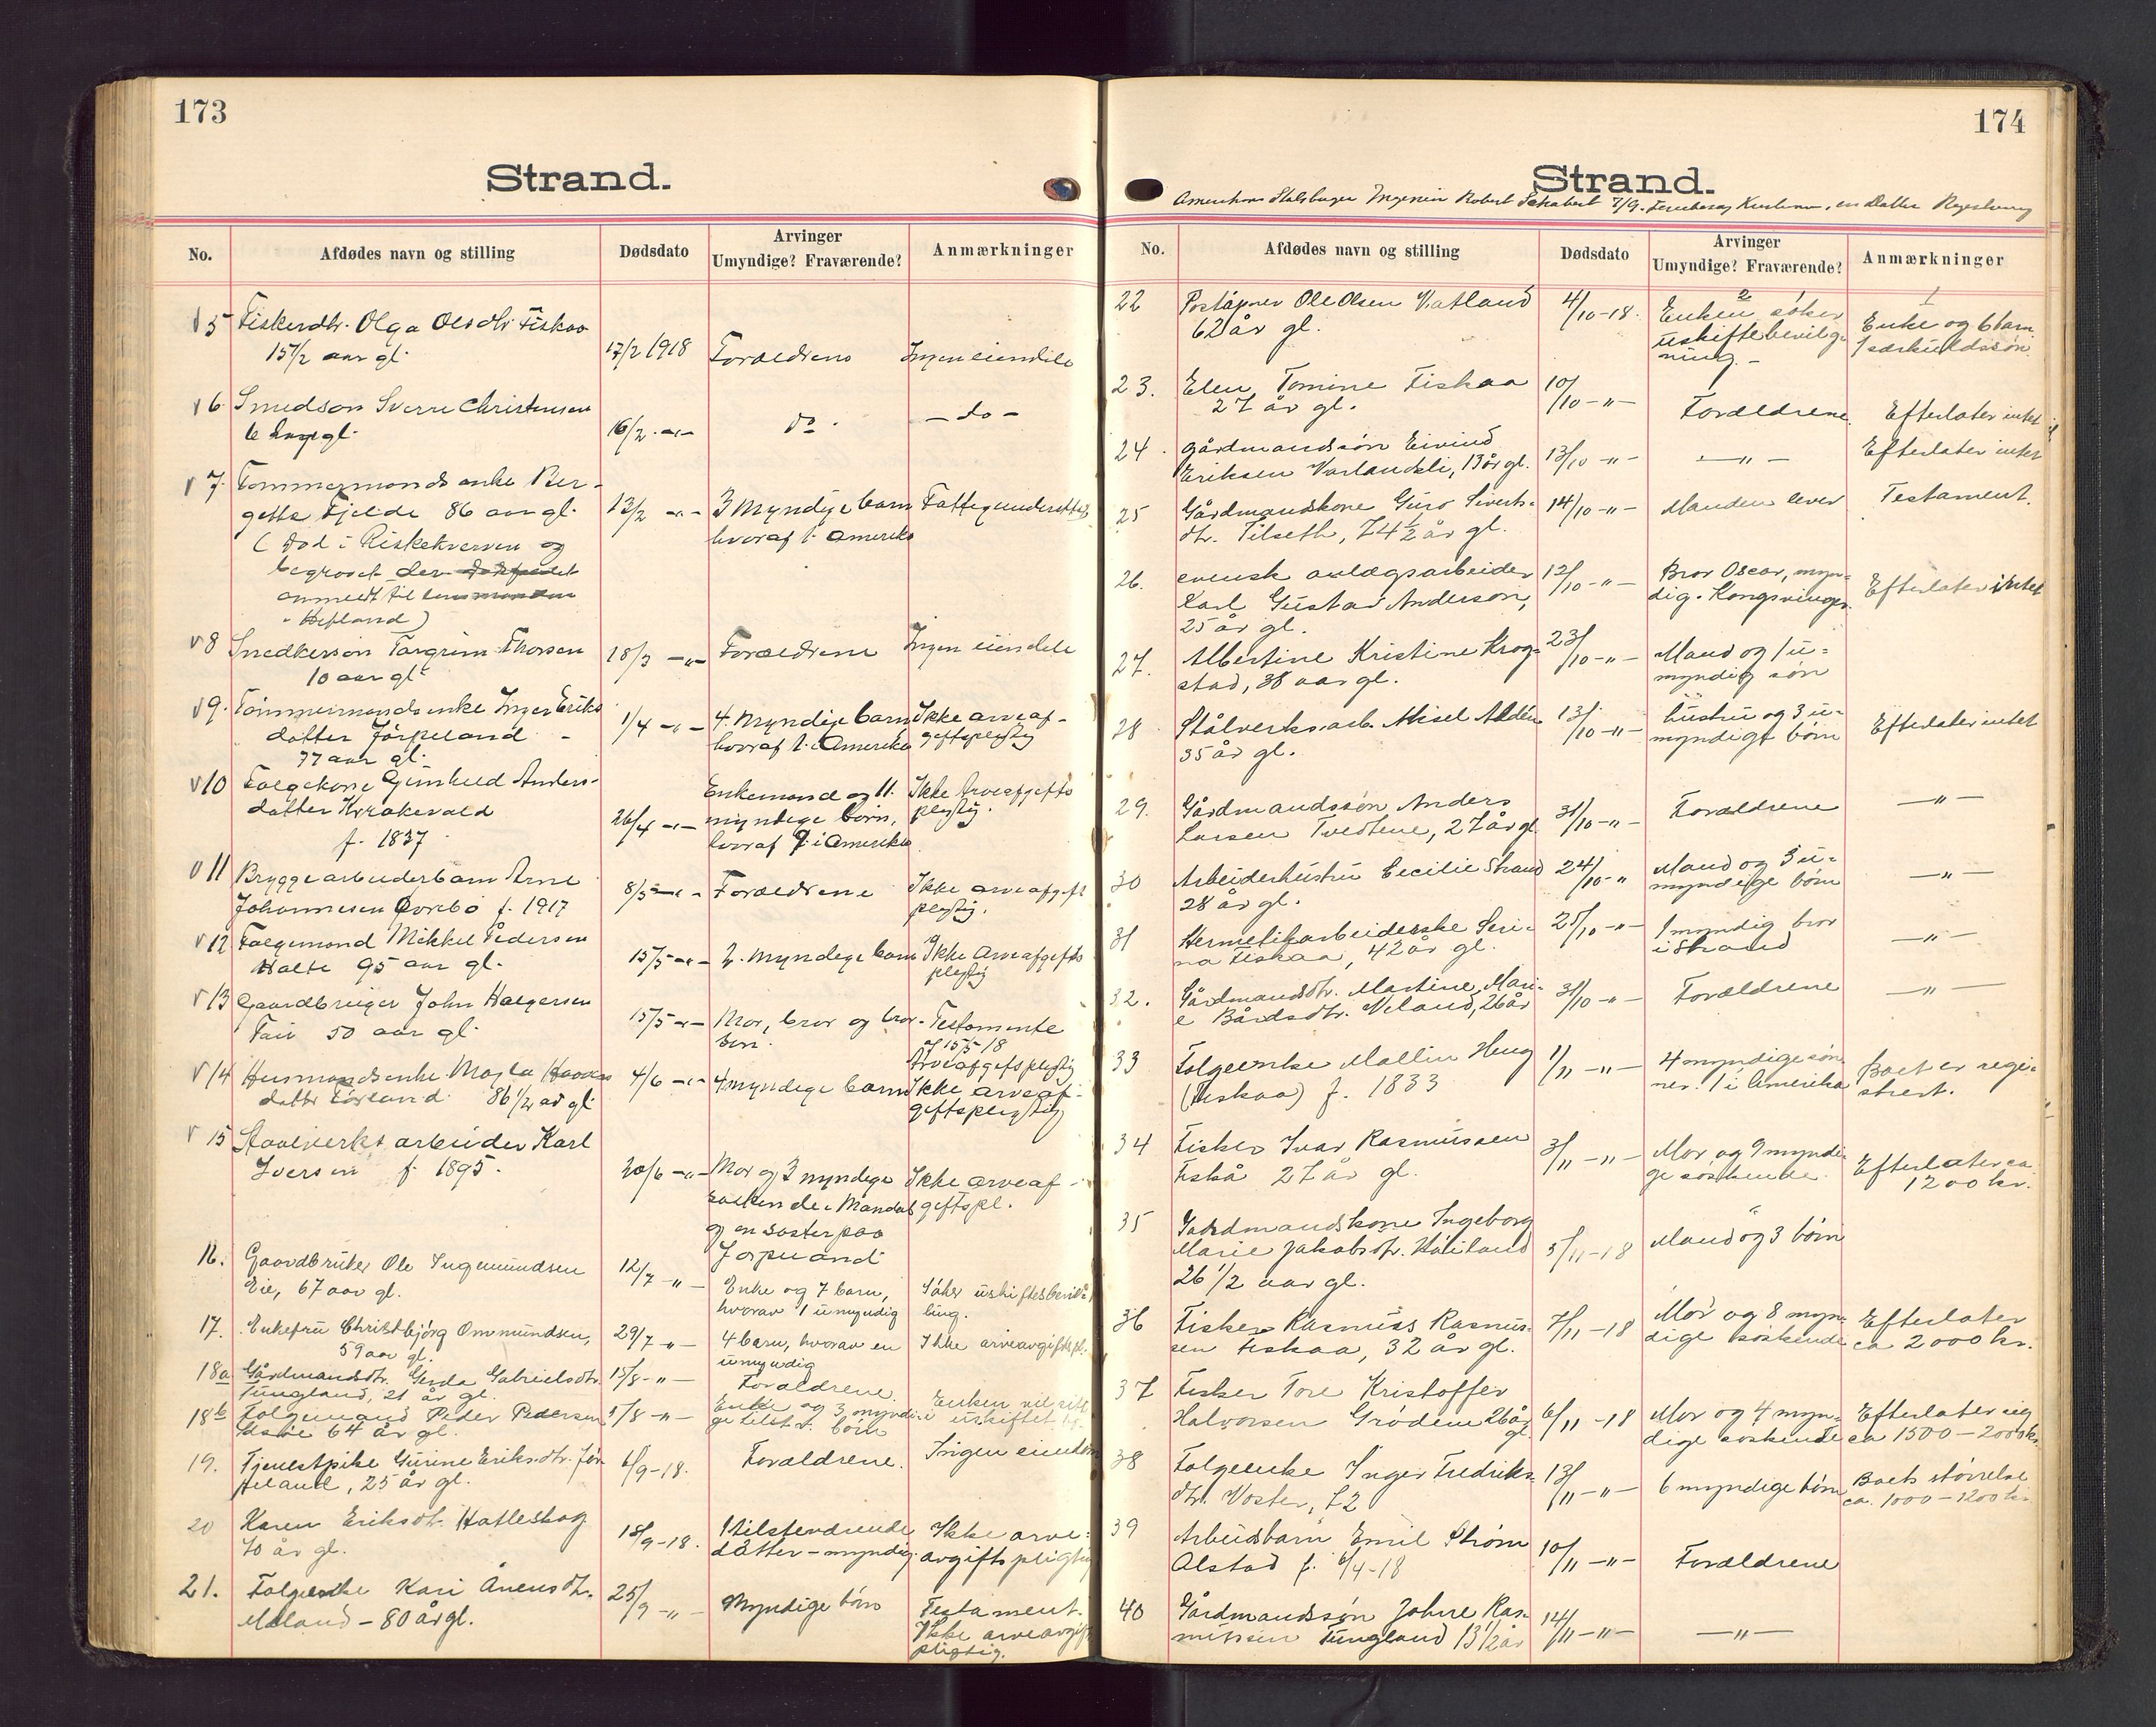 173
Strand.
No. Afdødes navn og stilling Dødsdato Arvinger Umyndige? Fraværende? Anmærkninger
5 Fiskerdtr. Olga Olsdtr Fiskaa 15 1/2 aar gl. 17/2 1918 Forældrene Ingen eiendele
6 Smedsøn Sverre Christensen 16/2 -"- do. - do -
7 Tømmermandsenke Ber-
gette Fjelde 86 aar gl. 13/2 -"- 3 myndige barn
hvoraf 1 i Amerika
(Død i Riskekverven og
begravet der
anmeldt til
i Hetland)
8 Snedkersøn Torgrim Thorsen
10 aar gl. 18/3 -"- Forældrene Ingen eiendele
9. Tømmermandsenke Inger Eriks
datter Jørpeland
77 aar gl. 1/4 -"- 4 myndige barn
hvoraf 1 i Amerika Ikke arveaf-
giftspligtig
10 Følgekone Gunhild Anders-
datter Krakevald
f. 1837 26/4 -"- Enkemand og 11
myndige børn,
hvoraf 9 i Amerika Ikke Arveafgifts
pligtig.
11 Bryggearbeiderbarn Arne
Johannesen Øvrebø f. 1917 8/5 -"- Forældrene Ikke arveafgift
pligtig.
12 Følgemand Mikkel Pedersen
Holte 95 aar gl. 15/5 -"- 2 myndige barn Ikke Arveafgifts
pligtig
13 Gaardbruger John Halgersen
Tau 50 aar gl. 15/5 -"- Mor, bror og bror-
børn. Testamente
af 15/5 18
Arveafgiftspligtig
14 Husmandsenke
86 1/2 aar gl. 4/6 -"- 4 myndige barn Ikke arveaf-
giftspligtig
15 Staalverksarbeider Karl
Iversen f. 1895. 20/6 -"- Mor og 3 myndige
søskende i Mandal
og en søster paa
Jørpeland Ikke arveaf-
giftspl.
16. Gaardbruker Ole Ingmundsen
Eie, 67 aar gl. 12/7 -"- Enke og 7 barn,
hvorav 1 umyndig Søker uskiftesbevil-
ling.
17. Enkefru Christbjørg Ommundsen,
59 aar gl. 29/7 -"- 4 barn, hvorav en
umyndig Ikke arveavgiftspl.
18a Gårdmandsdtr. Gerda Gabrielsdtr.
Tungland, 21 år gl. 15/8 -"- Forældrene.
18b Følgemand Peder Pedersen
64 år gl. 5/8 -"- Enke og 3 myndi-
ge tilst. børn Enken vil sitte
i uskiftet
19. Tjenestpike Gurine Eriksdtr. Jør-
peland, 25 år gl. 6/9-18. Forældrene. Ingen eiendom
20 Karen Eriksdtr. Hatleskog
70 år gl. 18/9-18. 1 tilstedeværende
datter - myndig. Ikke arve-
avgiftspligtig
21. Følgeenke Kari Ånensdtr.
Meland - 80 år gl. 25/9 -"- Myndige børn Testament.
Ikke arveavgift
pligtig.
174
Strand.
Robert
No. Afdødes navn og stilling Dødsdato Arvinger Umyndige? Fraværende? Anmærkninger
22 Poståpner Ole Olsen Vatland
62 år gl. 4/10-18. Enken søker
uskiftebevilg-
ning. - Enke og 6 barn
1 særkuldssøn
23. Elen Tomine Fiskaa
27 år gl. 10/10 -"- Forældrene. Efterlater intet
24. Gårdmandssøn Eivind
Eriksen Varlandsli, 13 år gl. 13/10 -"- -"- Efterlater intet
25 Gårdmandskone Guro Siverts-
dtr. Tilseth, 74 1/2 år gl. 14/10 -"- Manden lever Testament.
26. svensk anlægsarbeider
Karl Gustav Anderson,
25 år gl. 12/10 -"- Bror Oscar, myn-
dig. Kongsvinger Efterlater intet
27. Albertine Kristine Krog-
stad, 38 aar gl. 23/10 -"- Mand og 1 u-
myndig søn
28 Stålverksarb. Aksel Aldén
35 år gl. 13/10 -"- hustru og 3 u-
myndige børn Efterlater intet
29. Gårdmandssøn Anders
Larsen Tvedtene, 27 år gl. 31/10 -"- Forældrene -"-
30 Arbeiderhustru Cecilie Strand
28 år gl. 24/10 -" Mand og 3 u-
myndige børn -"-
31 Hermetikarbeiderske Seri-
na Fiskaa, 42 år gl. 25/10 -"- 1 myndig bror
i Strand -"-
32. Gårdmandsdtr. Martine Mari-
e Bårdsdtr. Veland, 26 år 31/10 -"- Forældrene -"-
33 Følgeenke Mallin Heng
(Fiskaa) f. 1833 1/11 -"- 4 myndige søn-
ner. 1 i Amerika Boet er regi-
strert.
34 Fisker Ivar Rasmussen
Fiskå 27 år gl. 3/11 -"- Mor og 9 myndi-
ge søskende. Efterlater ca.
1200 kr.
35 Gårdmandskone Ingeborg
Marie Jakobsdtr. Håiland
26 1/2 aar gl. 5/11-18 Mand og 3 børn
36 Fisker Rasmus Rasmus-
sen Fiskaa, 32 år gl. 7/11-18 Mor og 8 myn-
dige søskende Efterlater
ca 2000 kr.
37 Fisker Tore Kristoffer
Halvorsen Grødem 26 år gl. 6/11-18 Mor og 4 myn-
dige søskende Efterlater sig
ca 1500-2000 kr.
38 Følgeenke Inger Fredriks-
dtr. Voster, 72 13/11 -"- 6 myndige børn Boets størrelse
ca. 1000-1200 kr.
39 Arbeidsbarn Emil Strøm
Alstad f. 6/4-18 10/11 -"- Forældrene
40 Gårdmandssøn Johne Ras-
mussen Tungland 13 1/2 år 14/11 -"- -"-